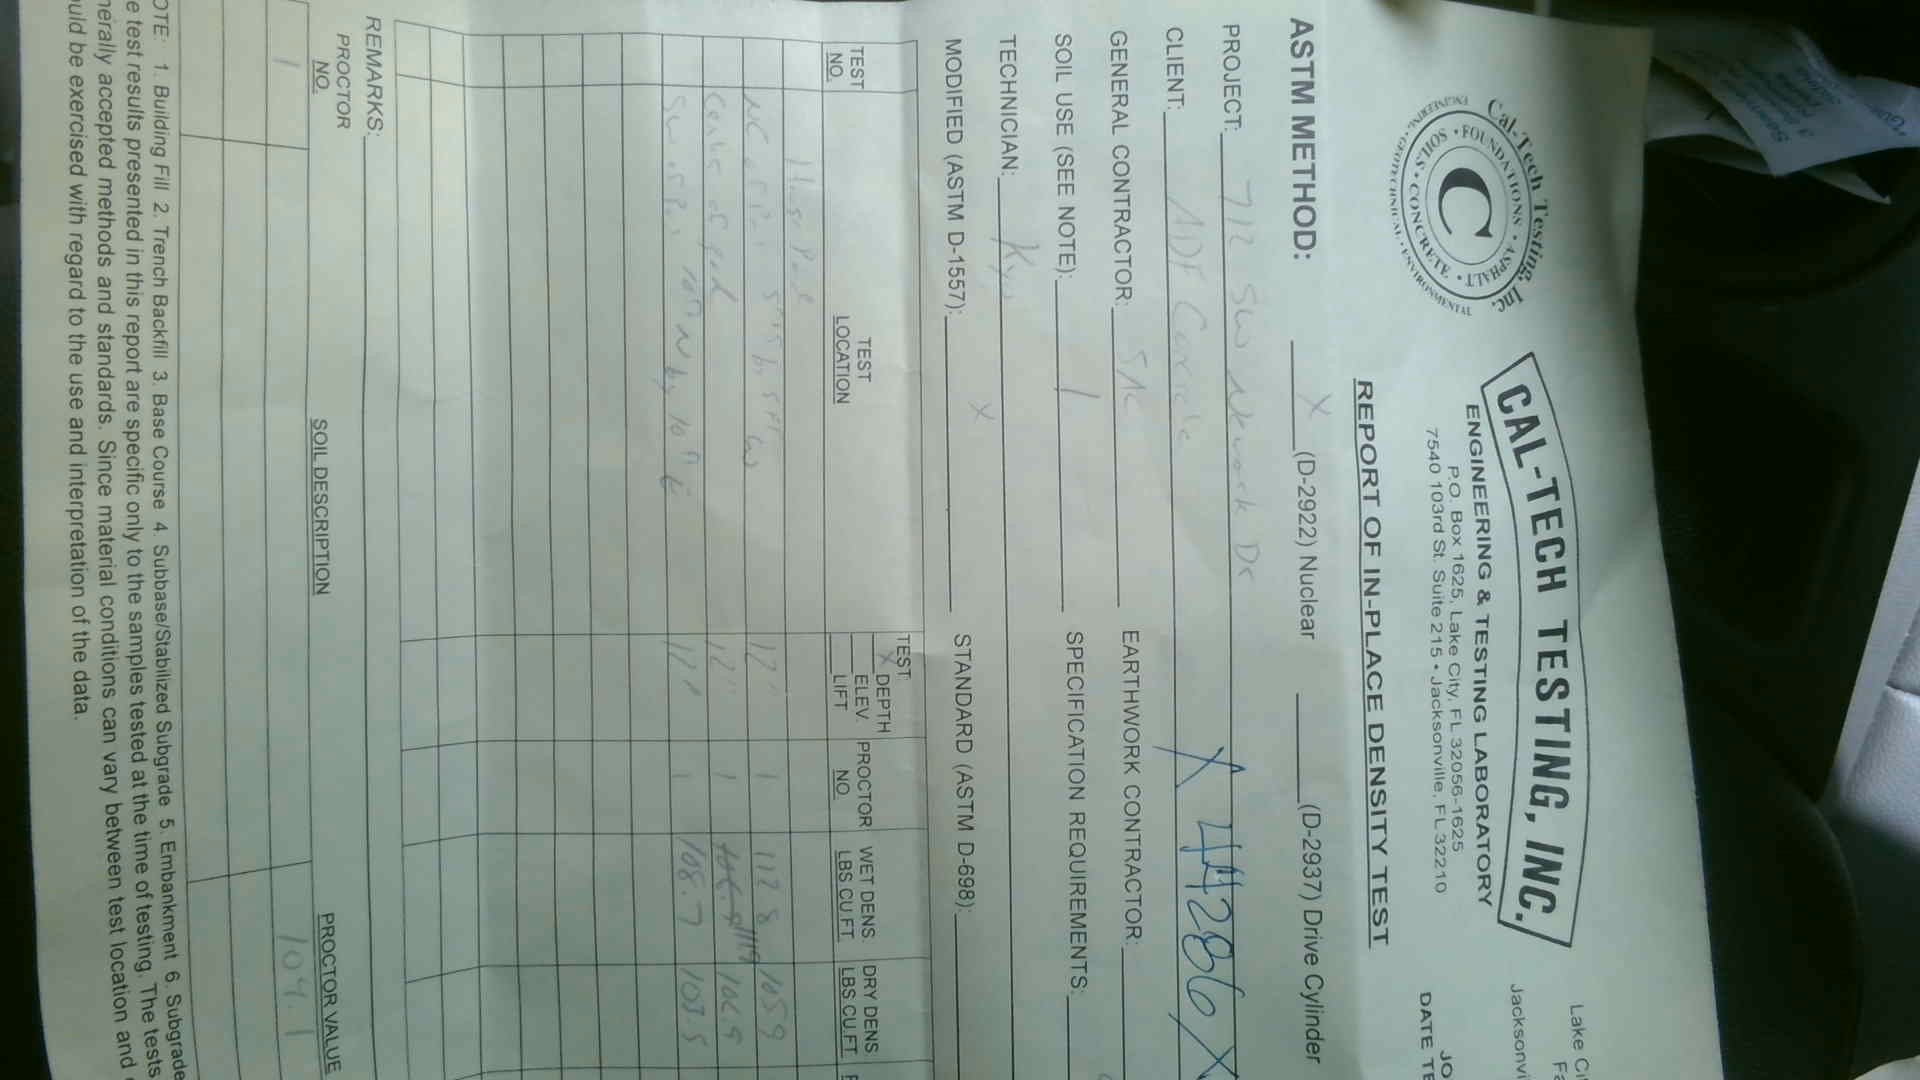 Cal-Tech Testing, Inc.
ENGINEERING • GEOTECHNICAL • ENVIRONMENTAL
SOILS • FOUNDATIONS • ASPHALT • CONCRETE
C
CAL-TECH TESTING, INC.
ENGINEERING & TESTING LABORATORY
P.O. Box 1625, Lake City, FL 32056-1625
7540 103rd St. Suite 215 • Jacksonville, FL 32210
Lake
Jacksonvi
REPORT OF IN-PLACE DENSITY TEST
JO
DATE TE
ASTM METHOD: X (D-2922) Nuclear (D-2937) Drive Cylinder
PROJECT: 712 SW Dr
X 2867 X
CLIENT: ADF
GENERAL CONTRACTOR: EARTHWORK CONTRACTOR:
SOIL USE (SEE NOTE): 1 SPECIFICATION REQUIREMENTS:
TECHNICIAN:
MODIFIED (ASTM D-1557): X STANDARD (ASTM D-698):
TEST NO. TEST LOCATION TEST X DEPTH ELEV. LIFT PROCTOR NO. WET DENS. LBS.CU.FT. DRY DENS LBS.CU.FT.
NE 5'S by 5' W 12" 1 112.8 105.9
Center of pad 12" 1 111.9 106.9
SW 10' N by 10' E 12" 1 108.7 103.5
REMARKS:
PROCTOR NO. SOIL DESCRIPTION PROCTOR VALUE
1 104.1
OTE: 1. Building Fill 2. Trench Backfill 3. Base Course 4. Subbase/Stabilized Subgrade 5. Embankment 6. Subgrade
e test results presented in this report are specific only to the samples tested at the time of testing. The tests
nerally accepted methods and standards. Since material conditions can vary between test location and
uld be exercised with regard to the use and interpretation of the data.